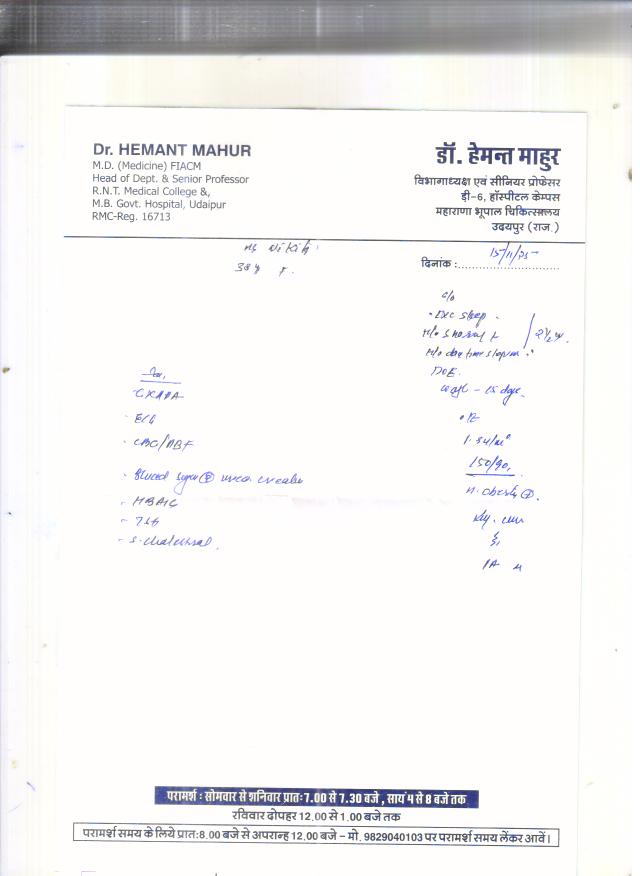 Dr. HEMANT MAHUR
M.D. (Medicine) FIACM
Head of Dept. & Senior Professor
R.N.T. Medical College &,
M.B. Govt. Hospital, Udaipur
RMC-Reg. 16713
डॉ. हेमन्त माहुर
विभागाध्यक्ष एवं सीनियर प्रोफेसर
ड़ी-6, हॉस्पीटल केम्पस
महाराणा भूपाल चिकित्सालय
उदयपुर (राज.)
38 y F.
दिनांक : 15/11/25
c/o
- Exc sleep.
H/o snoring +
H/o day time
DOE.
- 15 days.
O/E
150/90
ECG
CBC/PBF
Blood sugar urea creatin
HBA1C
TSH
S. cholesterol.
परामर्श : सोमवार से शनिवार प्रातः 7.00 से 7.30 बजे, सायं 4 से 8 बजे तक
रविवार दोपहर 12.00 से 1.00 बजे तक
परामर्श समय के लिये प्रातः 8.00 बजे से अपरान्ह 12.00 बजे – मो. 9829040103 पर परामर्श समय लेंकर आवें।